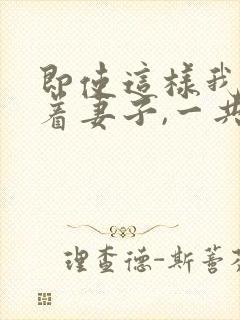 即使這樣我
着妻子,一共
理查德-斯蒈芬